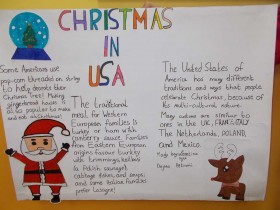 CHRISTMAS
IN
USA
Some Americans use
pop-corn threaded on string
to help decorate their
Christmas Tree! Making
gingerbread house is
also popular to make
and eat at Christmas!
The traditional
meal for Western
European families is
turkey or ham with
cranberry sauce! Families
from Eastern European
origins favour turkey
with trimmings, keilbasi
(a Polish sausage),
cabbage dishes, and soups;
and some Italian families
prefer lasagne!
The United States of
America has many different
traditions and ways that people
celebrate Christmas, because of
its multi-cultural nature.
Many customs are similar to
ones in the UK, FRANCE, ITALY
The Netherlands, POLAND,
and Mexico.